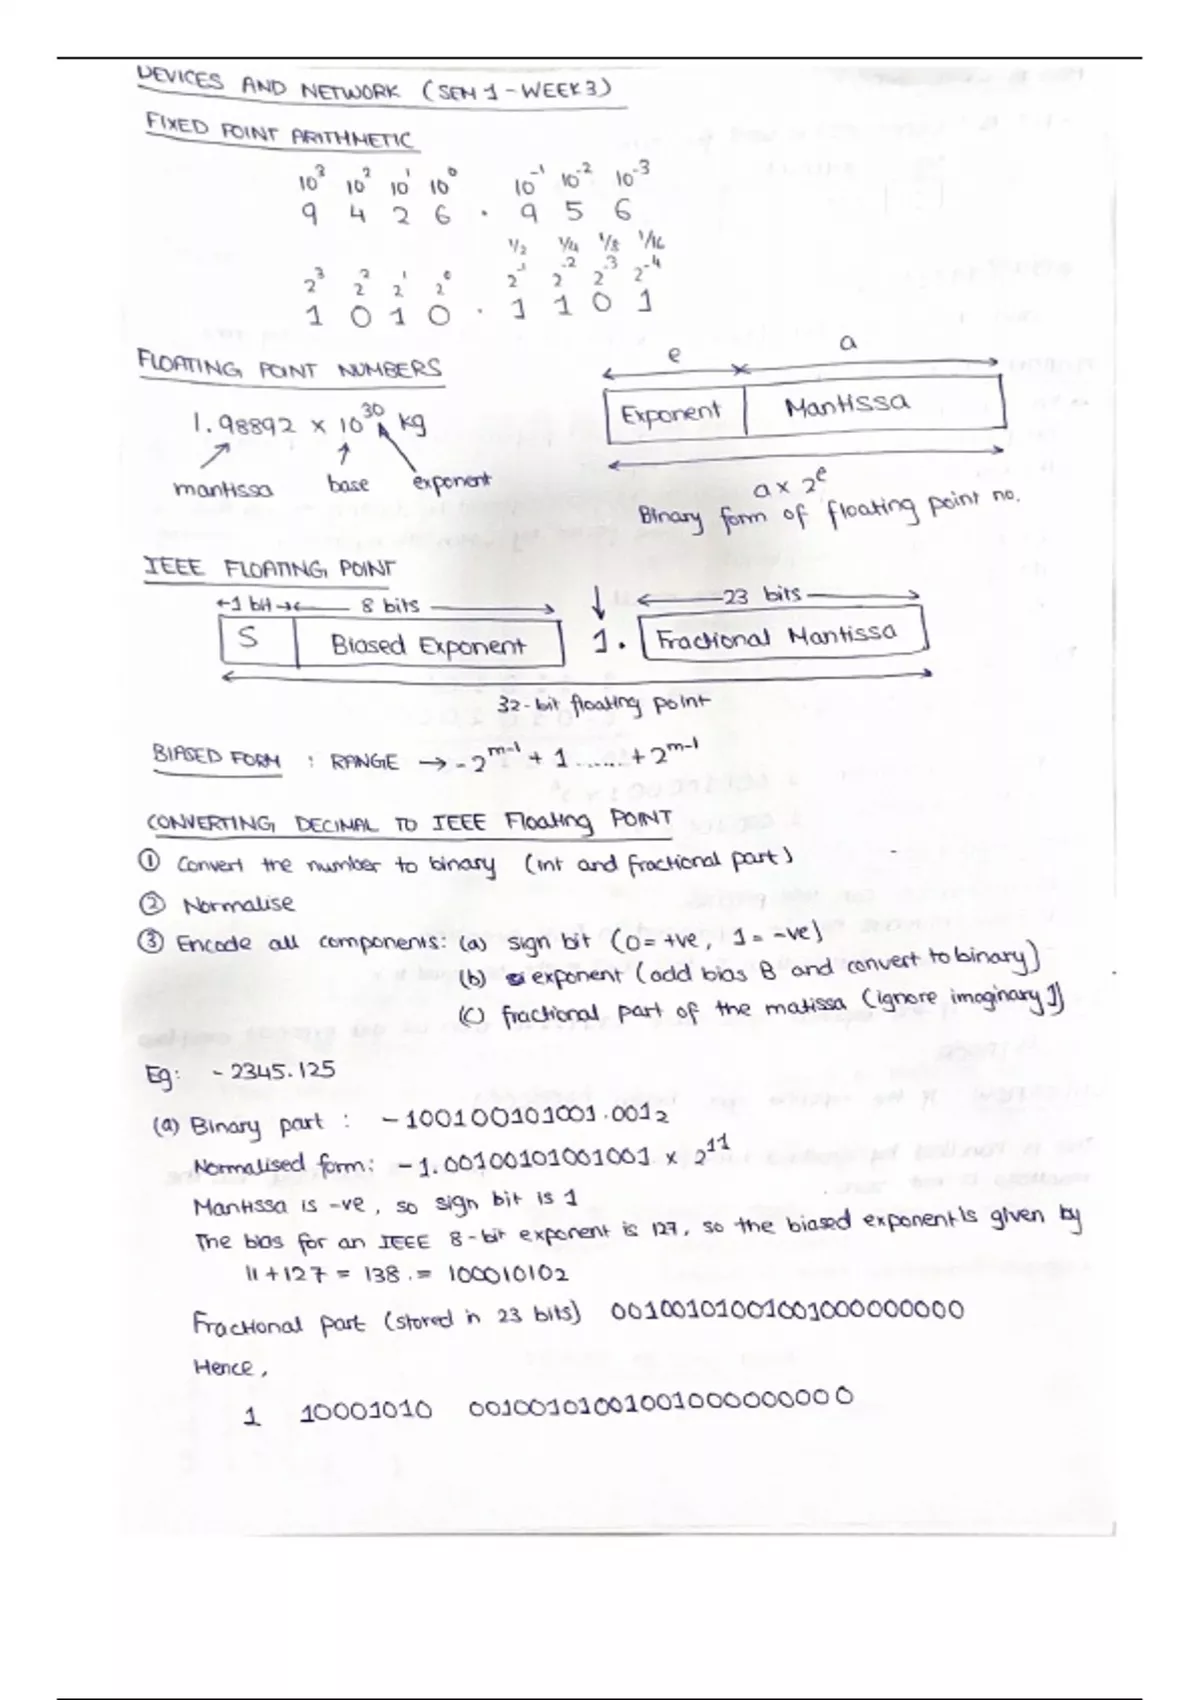 DEVICES AND NETWORK (SEM 1 - WEEK 3)
FIXED POINT ARITHMETIC
10³ 10² 10¹ 10⁰ 10⁻¹ 10⁻² 10⁻³
9 4 2 6 . 9 5 6
1/2 1/4 1/8 1/16
2³ 2² 2¹ 2⁰ 2⁻¹ 2⁻² 2⁻³ 2⁻⁴
1 0 1 0 . 1 1 0 1
FLOATING POINT NUMBERS
1.98892 x 10³⁰ kg
mantissa base exponent
e a
Exponent Mantissa
a x 2ᵉ
Binary form of floating point no.
IEEE FLOATING POINT
1 bit 8 bits 23 bits
S Biased Exponent 1. Fractional Mantissa
32-bit floating point
BIASED FORM : RANGE → -2ᵐ⁻¹ + 1 ...... + 2ᵐ⁻¹
CONVERTING DECIMAL TO IEEE Floating POINT
① Convert the number to binary (int and fractional part)
② Normalise
③ Encode all components: (a) sign bit (0 = +ve, 1 = -ve)
(b) exponent (add bias B and convert to binary)
(c) fractional part of the matissa (ignore imaginary 1)
Eg: - 2345.125
(a) Binary part : - 100100101001.001₂
Normalised form: - 1.00100101001001 x 2¹¹
Mantissa is -ve, so sign bit is 1
The bias for an IEEE 8-bit exponent is 127, so the biased exponent is given by
11 + 127 = 138 . = 10001010₂
Fractional part (stored in 23 bits) 00100101001001000000000
Hence,
1 10001010 00100101001001000000000